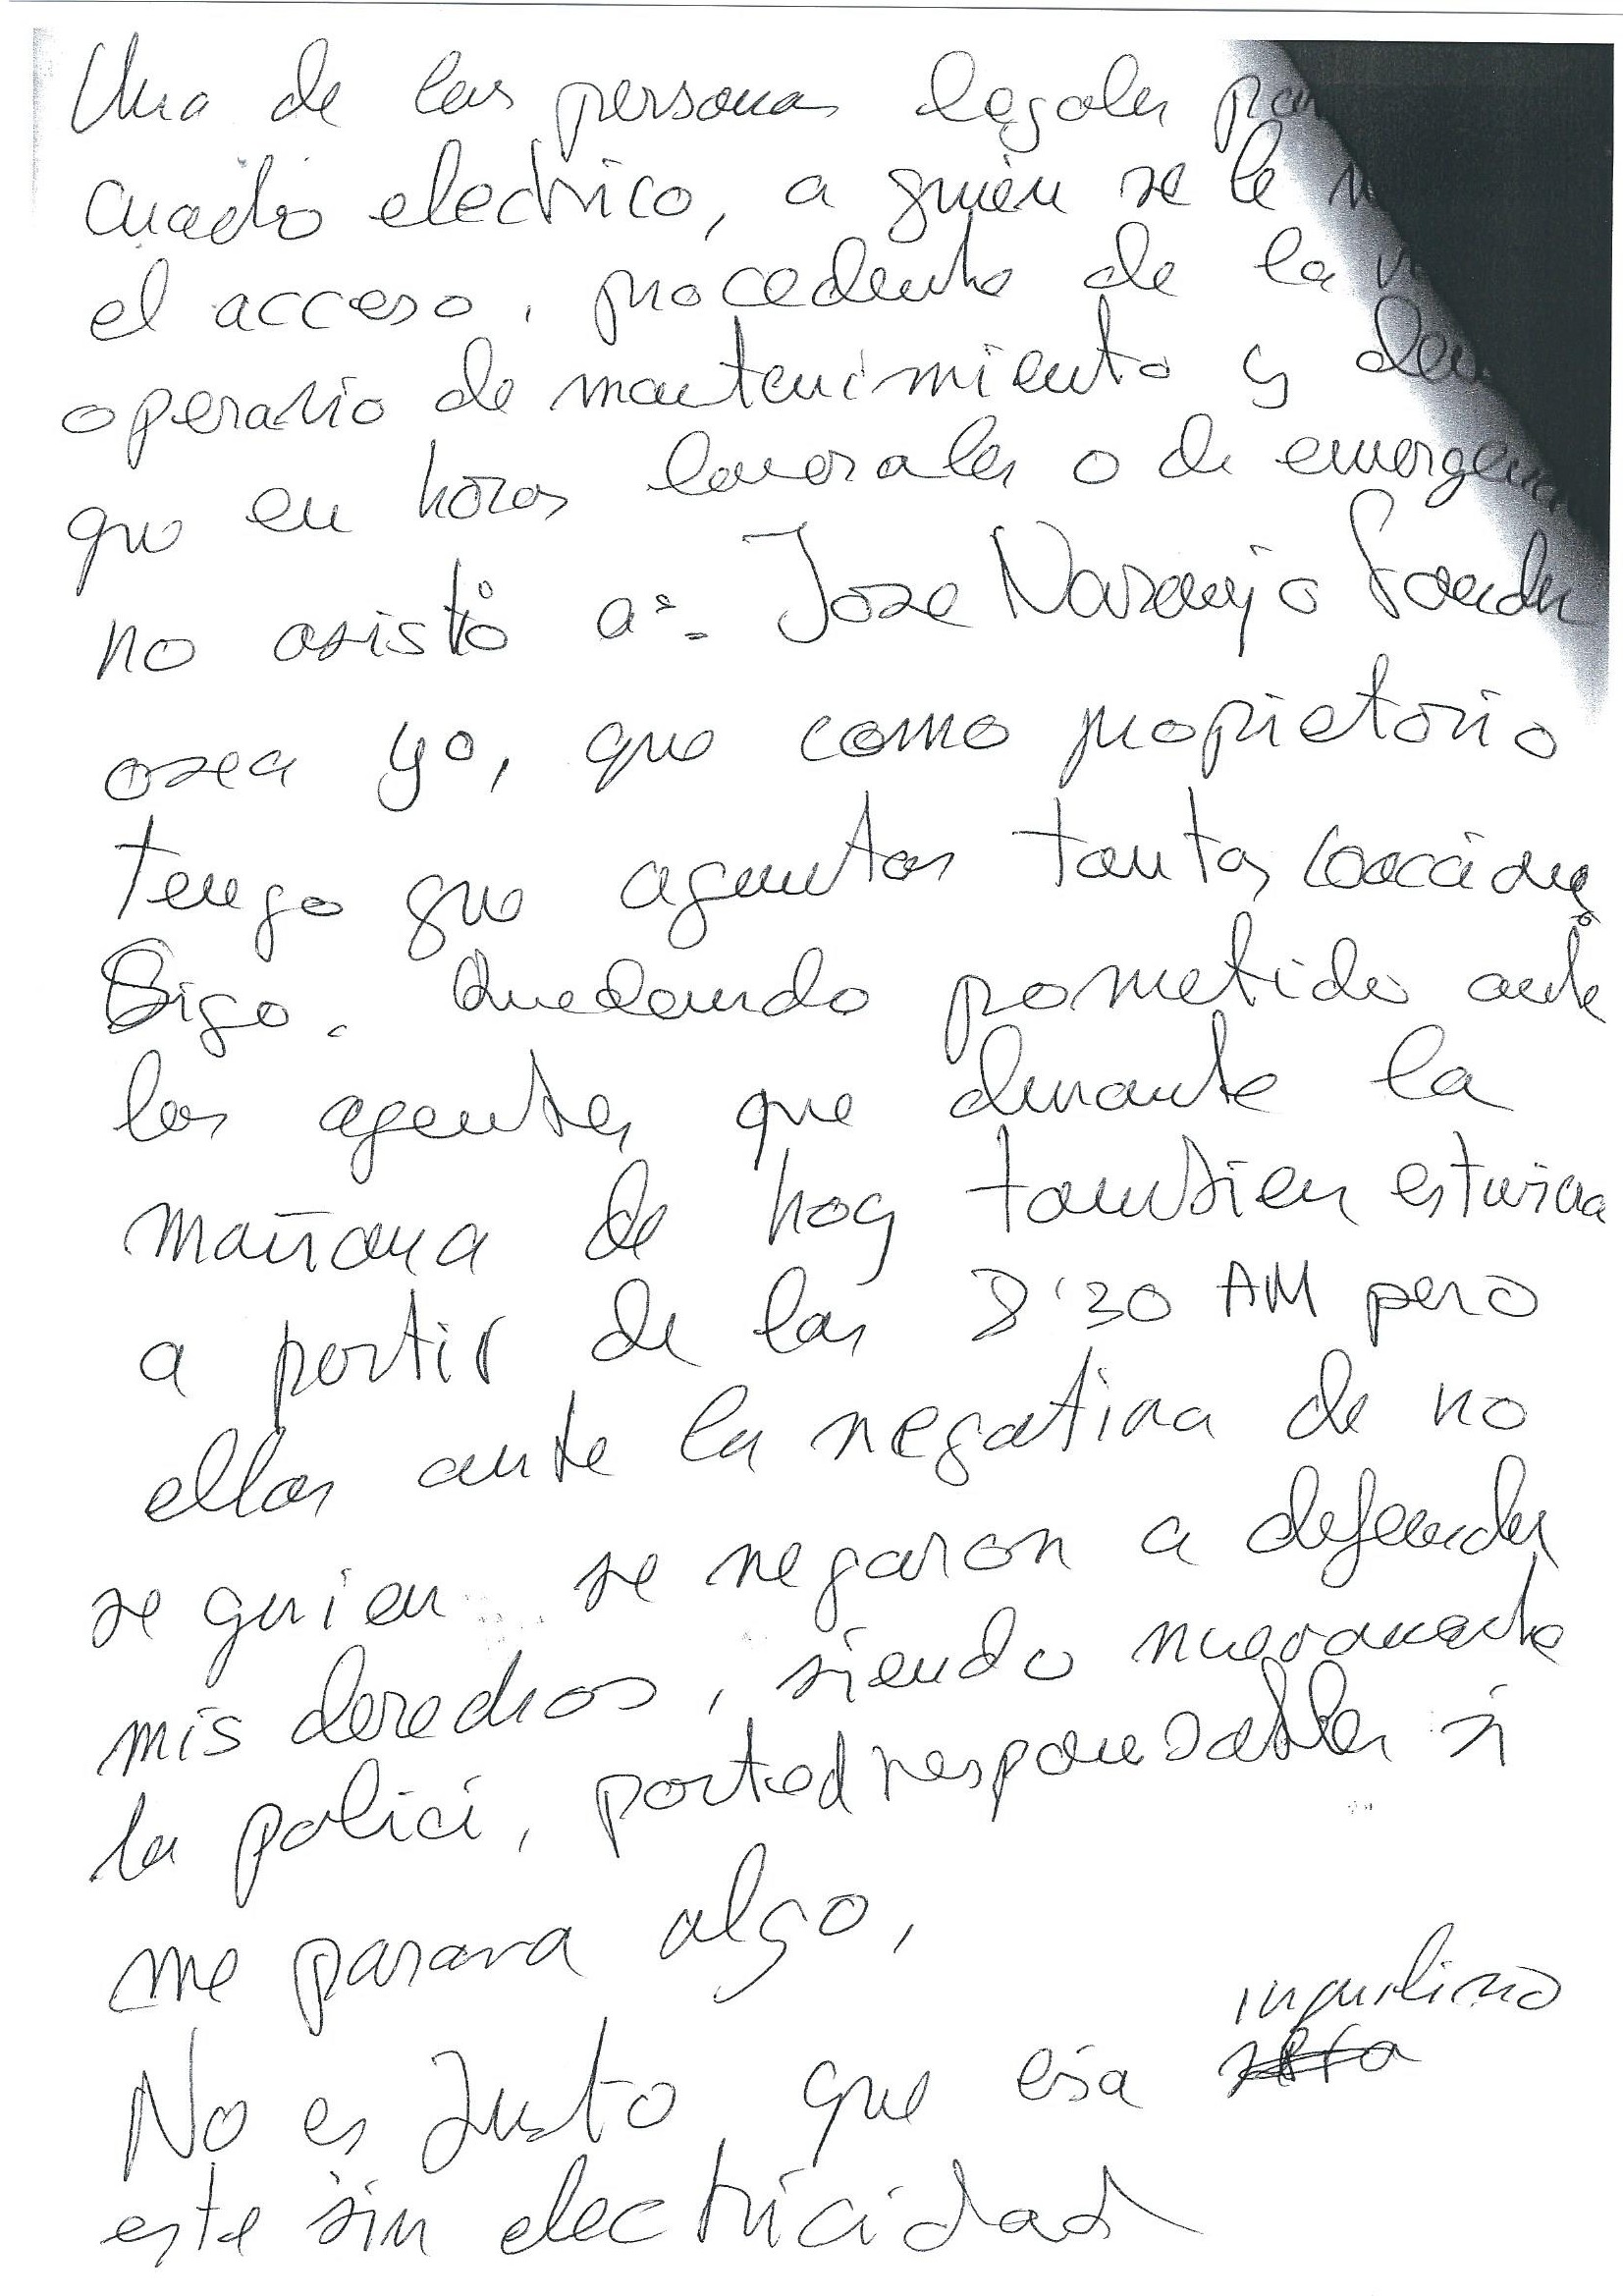 Una de las personas legales pa
cuadro electrico, a quien se le n
el acceso, procedente de la
operario de mantenimiento y
que en horas lavorales o de emergencia
no asistó a:- Jose Naranjo
osea yo, que como propietario
tengo que aguntar tantas coacciones
Bigo. Quedando prometido ante
los agentes que durante la
mañana de hoy tambien estuviera
a partir de las 8'30 AM pero
ellos ante la negativa de no
se quien se negaron a defender
mis derechos, siendo nuevamente
la polici, responsables si
me parara algo,
inquilino
No es Justo que esa
este sin electricidad